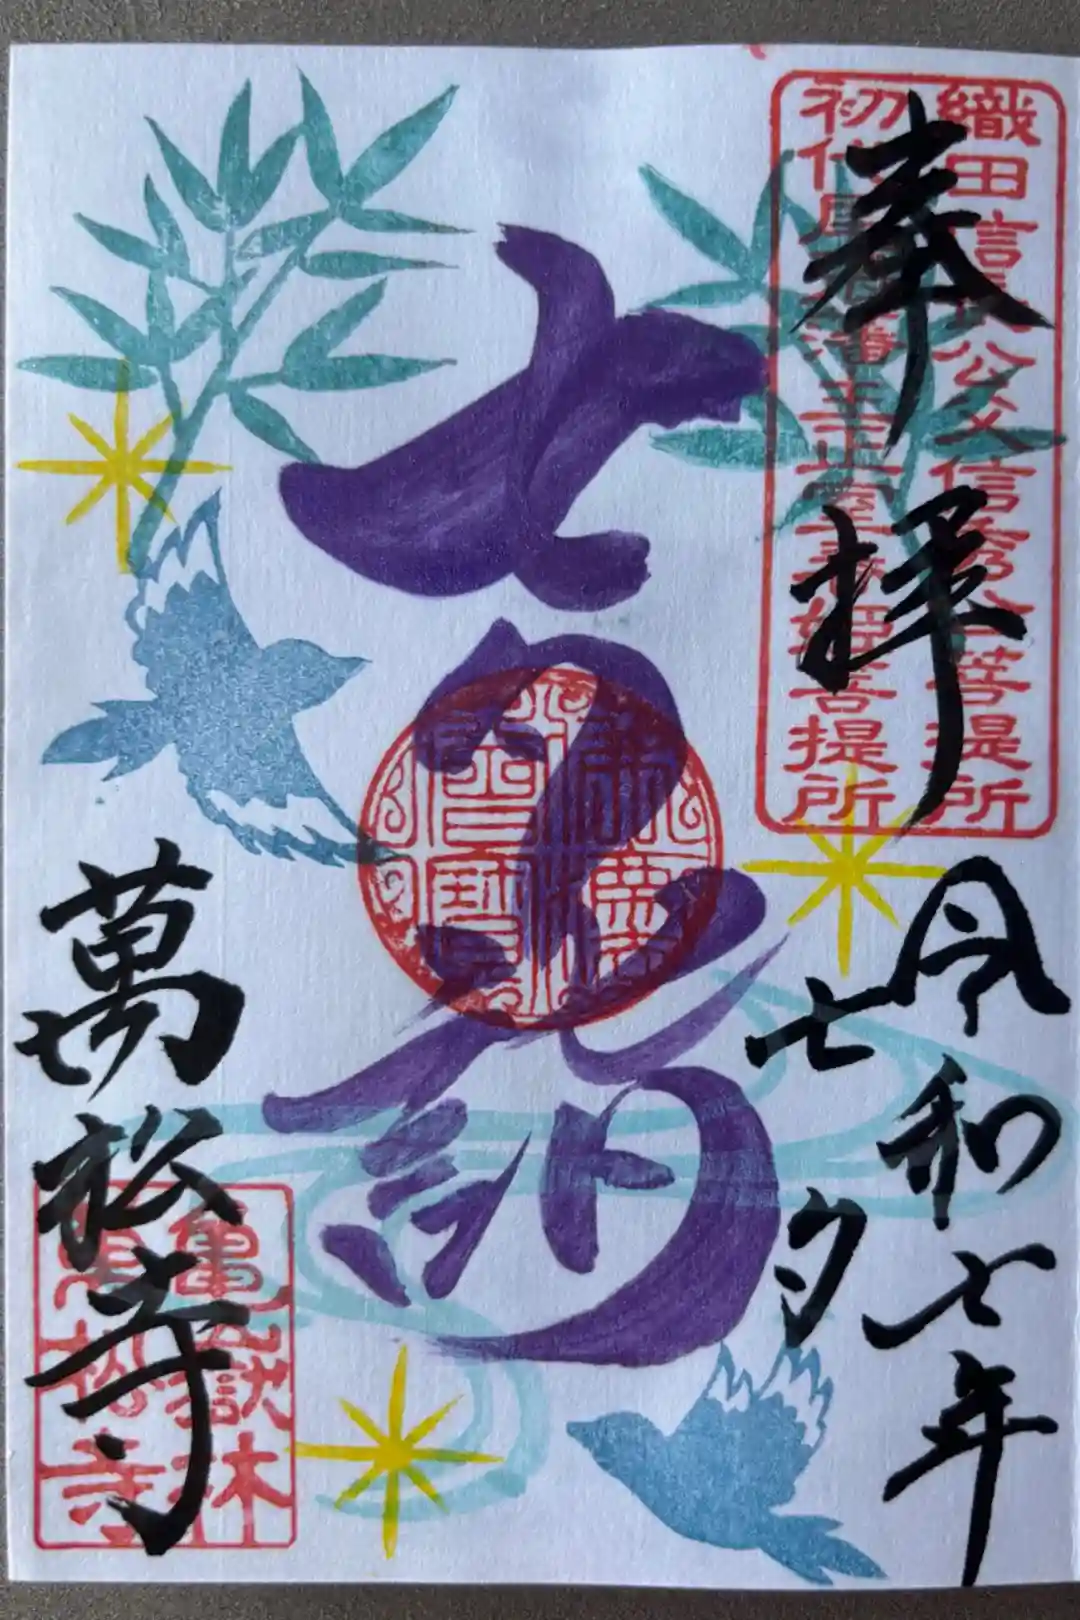 織田信長公父信秀公菩提所
初代尾張藩主正室春姫菩提所
奉拝
令和七年
七夕
七夕詣
萬松寺
亀嶽林
萬松寺